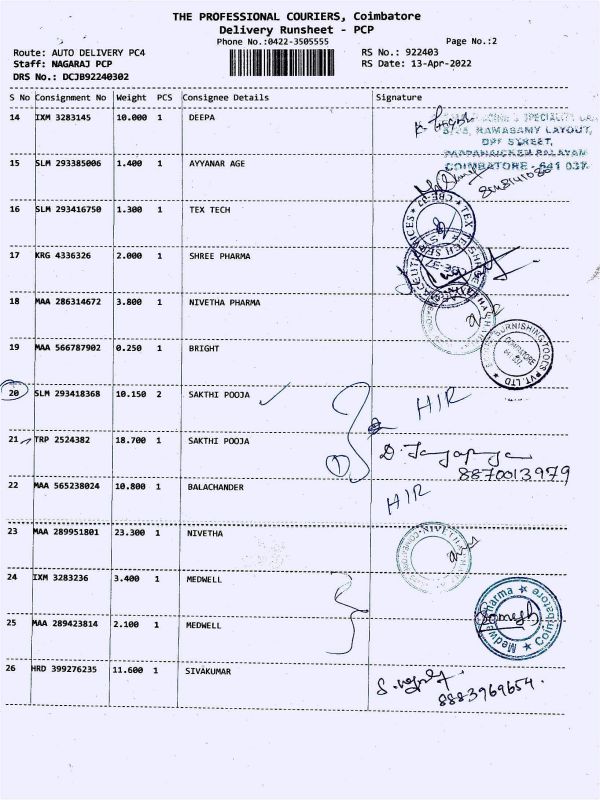 THE PROFESSIONAL COURIERS, Coimbatore
Delivery Runsheet - PCP
Phone No.:0422-3505555
Page No.:2
Route: AUTO DELIVERY PC4
RS No.: 922403
Staff: NAGARAJ PCP
RS Date: 13-Apr-2022
DRS No.: DCJB92240302
S No Consignment No Weight PCS Consignee Details Signature
14 IXM 3283145 10.000 1 DEEPA
RAMASAMY LAYOUT,
DPF STREET,
PAPPANAICKEN PALAYAM
COIMBATORE - 641 037
15 SLM 293385006 1.400 1 AYYANAR AGE
16 SLM 293416750 1.300 1 TEX TECH
TEX TECH SERVICES
17 KRG 4336326 2.000 1 SHREE PHARMA
18 MAA 286314672 3.800 1 NIVETHA PHARMA
19 MAA 566787902 0.250 1 BRIGHT
20 SLM 293418368 10.150 2 SAKTHI POOJA
HIR
21 TRP 2524382 18.700 1 SAKTHI POOJA
1
8870013979
22 MAA 565238024 10.800 1 BALACHANDER
HIR
23 MAA 289951801 23.300 1 NIVETHA
24 IXM 3283236 3.400 1 MEDWELL
Medwell Pharma ★ Coimbatore ★
25 MAA 289423814 2.100 1 MEDWELL
26 HRD 399276235 11.600 1 SIVAKUMAR
8883969654.